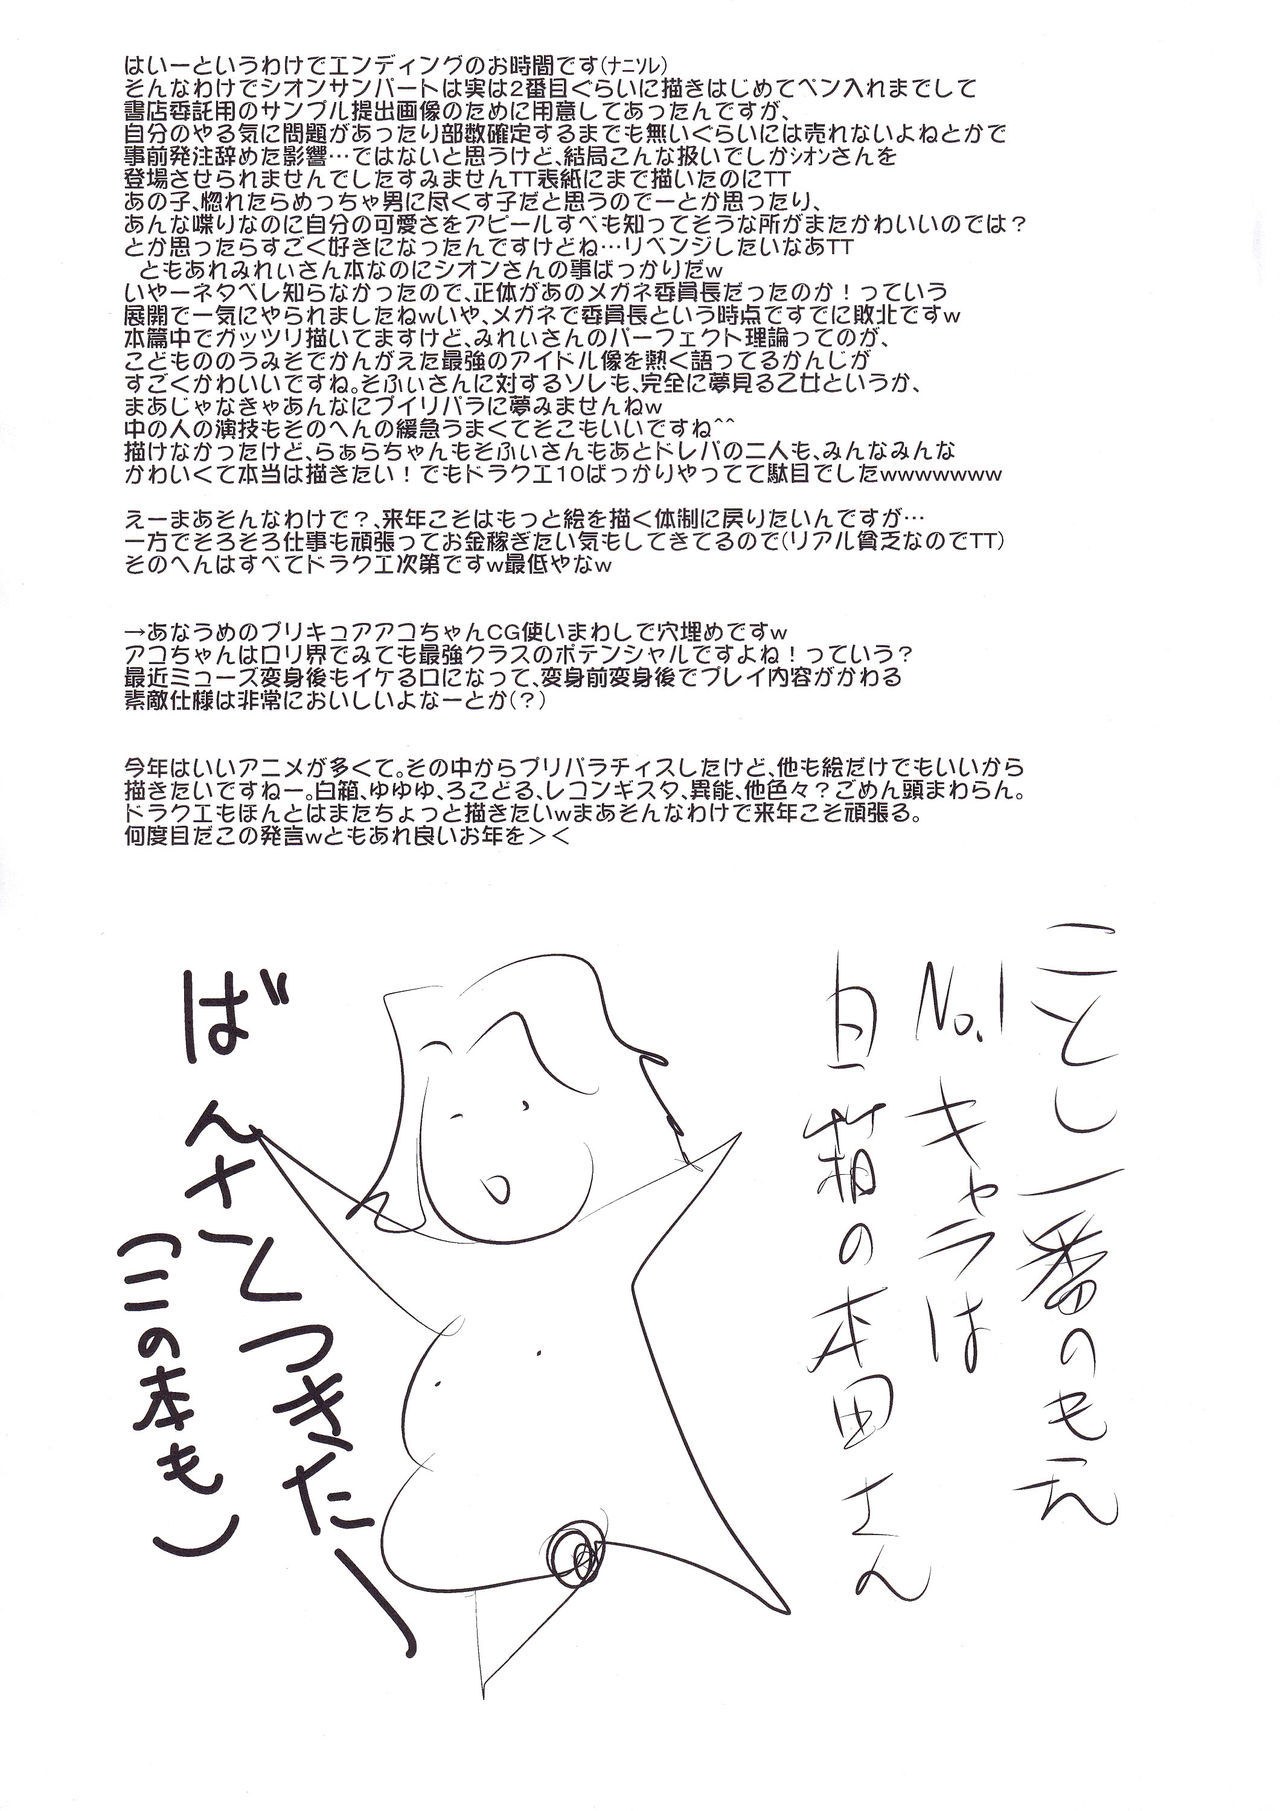 はいーというわけでエンディングのお時間です(ﾅﾆｿﾚ)
そんなわけでシオンサンパートは実は2番目ぐらいに描きはじめてペン入れまでして
書店委託用のサンプル提出画像のために用意してあったんですが、
自分のやる気に問題があったり部数確定するまでも無いぐらいには売れないよねとかで
事前発注辞めた影響…ではないと思うけど、結局こんな扱いでしかｼｵﾝさんを
登場させられませんでしたすみませんTT表紙にまで描いたのにTT
あの子、惚れたらめっちゃ男に尽くす子だと思うのでーとか思ったり、
あんな喋りなのに自分の可愛さをアピールすべも知ってそうな所がまたかわいいのでは？
とか思ったらすごく好きになったんですけどね…リベンジしたいなあTT
ともあれみれぃさん本なのにシオンさんの事ばっかりだw
いやーネタベレ知らなかったので、正体があのメガネ委員長だったのか！っていう
展開で一気にやられましたねwいや、メガネで委員長という時点ですでに敗北ですw
本篇中でガッツリ描いてますけど、みれぃさんのパーフェクト理論ってのが、
こどもののうみそでかんがえた最強のアイドル像を熱く語ってるかんじが
すごくかわいいですね。そふぃさんに対するソレも、完全に夢見る乙女というか、
まあじゃなきゃあんなにプイリパラに夢みませんねw
中の人の演技もそのへんの緩急うまくてそこもいいですね^^
描けなかったけど、らぁらちゃんもそふぃさんもあとドレパの二人も、みんなみんな
かわいくて本当は描きたい！でもドラクエ10ばっかりやってて駄目でしたwwwwwww
えーまあそんなわけで？、来年こそはもっと絵を描く体制に戻りたいんですが…
一方でそろそろ仕事も頑張ってお金稼ぎたい気もしてきてるので(リアル貧乏なのでTT)
そのへんはすべてドラクエ次第ですw最低やなw
今年はいいアニメが多くて。その中からプリパラチィスしたけど、他も絵だけでもいいから
描きたいですねー。白箱、ゆゆゆ、ろこどる、レコンギスタ、異能、他色々？ごめん頭まわらん。
ドラクエもほんとはまたちょっと描きたいwまあそんなわけで来年こそ頑張る。
何度目だこの発言wともあれ良いお年を＞＜
ことし一番のもえ
No.1キャラは
白箱の本田さん
ばんさくつきたー
(この本も)